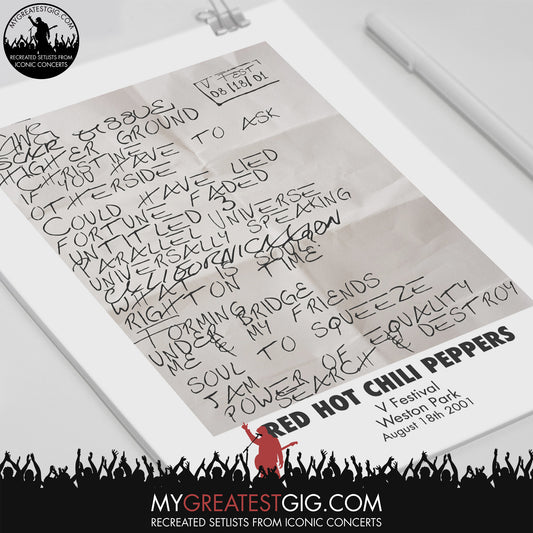 MYGREATESTGIG.COM
RECREATED SETLISTS FROM
ICONIC CONCERTS
V FEST
08/18/01
SCAR TISSUE
HIGHER GROUND
CHRISTINE
IF YOU HAVE TO ASK
OTHERSIDE
COULD HAVE LIED
FORTUNE FADED
UNTITLED 3
PARALLEL UNIVERSE
UNIVERSALLY SPEAKING
CALIFORNICATION
WHAT IS SOUL
RIGHT ON TIME
TORMING
UNDER BRIDGE
ME & MY FRIENDS
SOUL TO SQUEEZE
JAM
POWER OF EQUALITY
SEARCH & DESTROY
RED HOT CHILI PEPPERS
V Festival
Weston Park
August 18th 2001
MYGREATESTGIG.COM
RECREATED SETLISTS FROM ICONIC CONCERTS